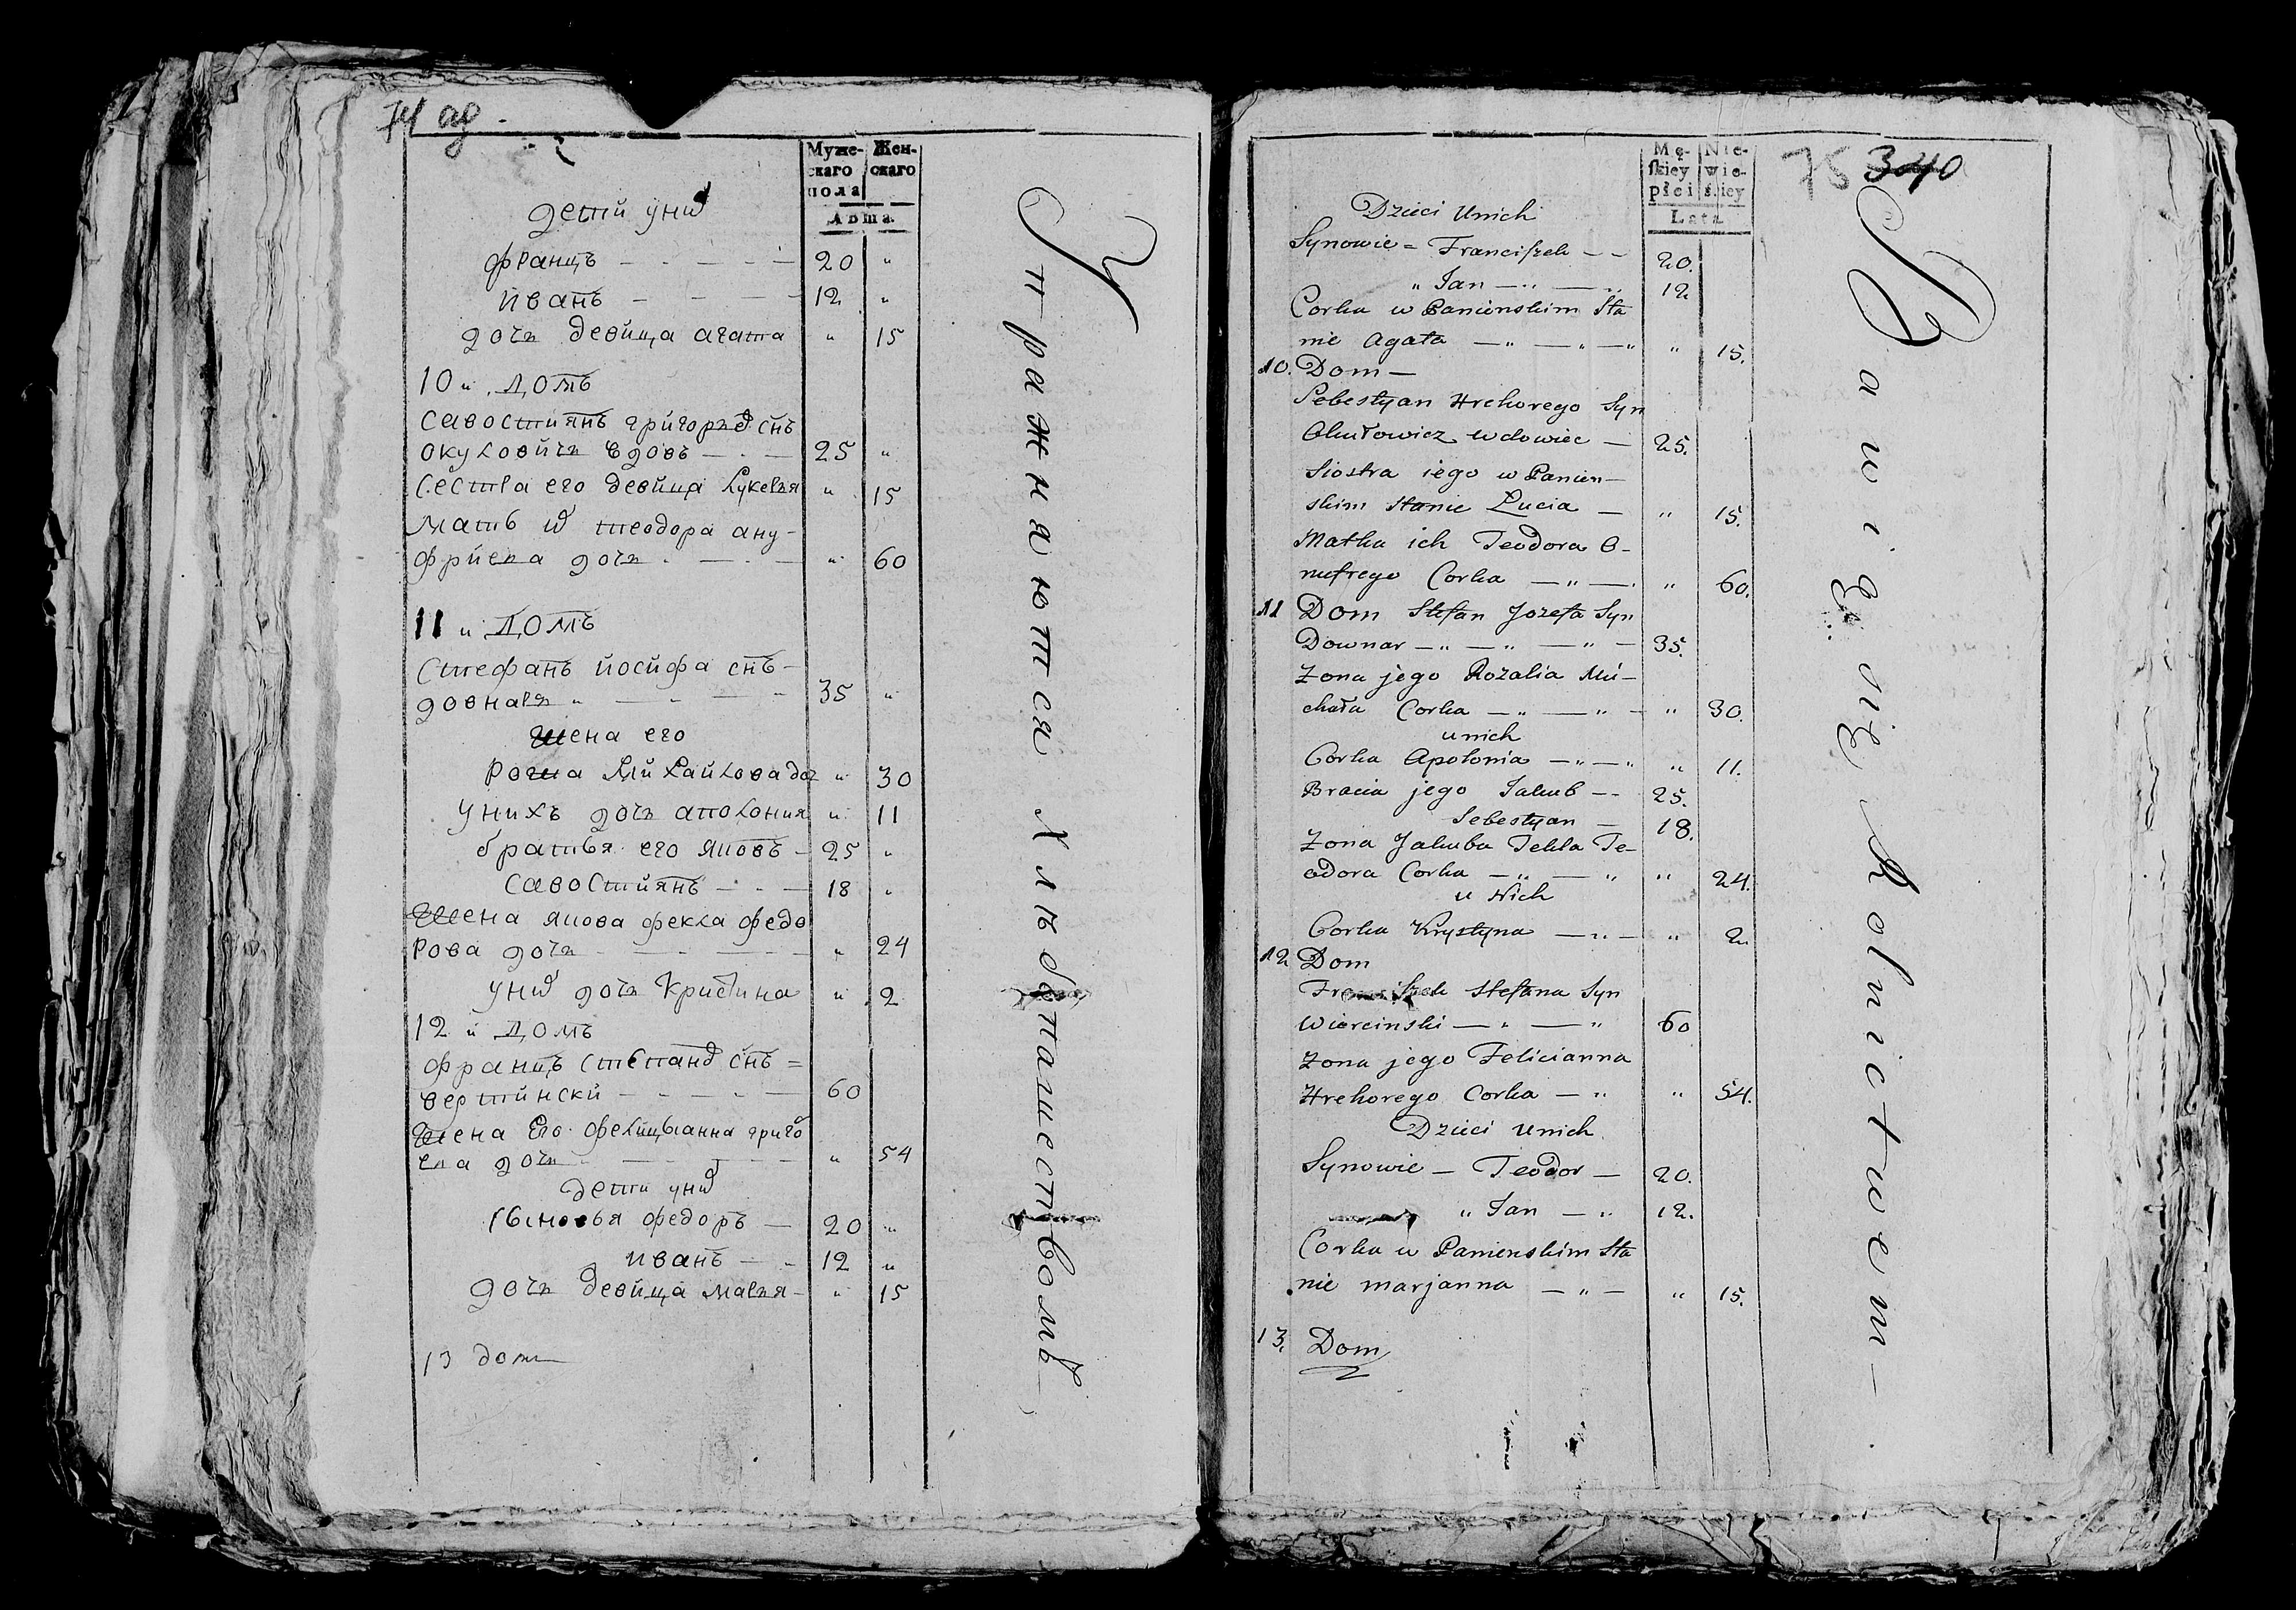 74 об.
Муже-
скаго
пола
Жен-
скаго
Лѣта
дети уних
францъ — 20 "
иванъ — 12 "
дочь девица агата " 15
10 й домъ
Савостиянъ григорьев снъ
окуловичь вдовъ — 25 "
Сестра его девица лукерья " 15
мать их теодора ану-
фриева дочь — " 60
11 й домъ
Стефанъ иосифа снъ
довнаръ — 35 "
Жена его
Рожа Михайлова доч " 30
унихъ дочь аполония " 11
братья его яковъ — 25 "
Савостиянъ — 18 "
Жена якова фекла федо
рова дочь — " 24
уних дочь Кристина " 2
12 й домъ
францъ степанов снъ =
вертински — 60
Жена Его фелициянна григо
ева дочь — " 54
дети уних
сыновья федоръ — 20 "
иванъ — 12 "
дочь девица марья — " 15
13 дом
Упражняются Хлѣбопашествомъ
75 340
Mę-
skiey
płci
Nie-
wie-
ściey
Lata
Dzieci Unich
Synowie = Franciszek — 20.
" Jan — 12
Corka w Panienskim Sta
nie Agata — " 15.
10. Dom —
Sebestyan Hrehorego Syn
Okułowicz wdowiec — 25.
Siostra iego w Panien—
skim stanie Łucia — " 15.
Matka ich Teodora O-
nufrego Corka — " 60.
11 Dom Stefan Jozefa Syn
Downar — 35.
Zona jego Rozalia Mi—
chała Corka — " 30.
unich
Corka Apolonia — " 11.
Bracia jego Jakub — 25.
Sebestyan — 18.
Zona Jakuba Tekla Te—
odora Corka — " 24.
u Nich
Corka Krystyna — " 2.
12 Dom
Franciszek Stefana Syn
Wiercinski — 60
Zona jego Felicianna
Hrehorego Corka — " 54.
Dzieci unich
Synowie — Teodor — 20.
" Jan — 12.
Corka w Panienskim Sta
nie marjanna — " 15.
13. Dom
Bawią się Rolnictwem —